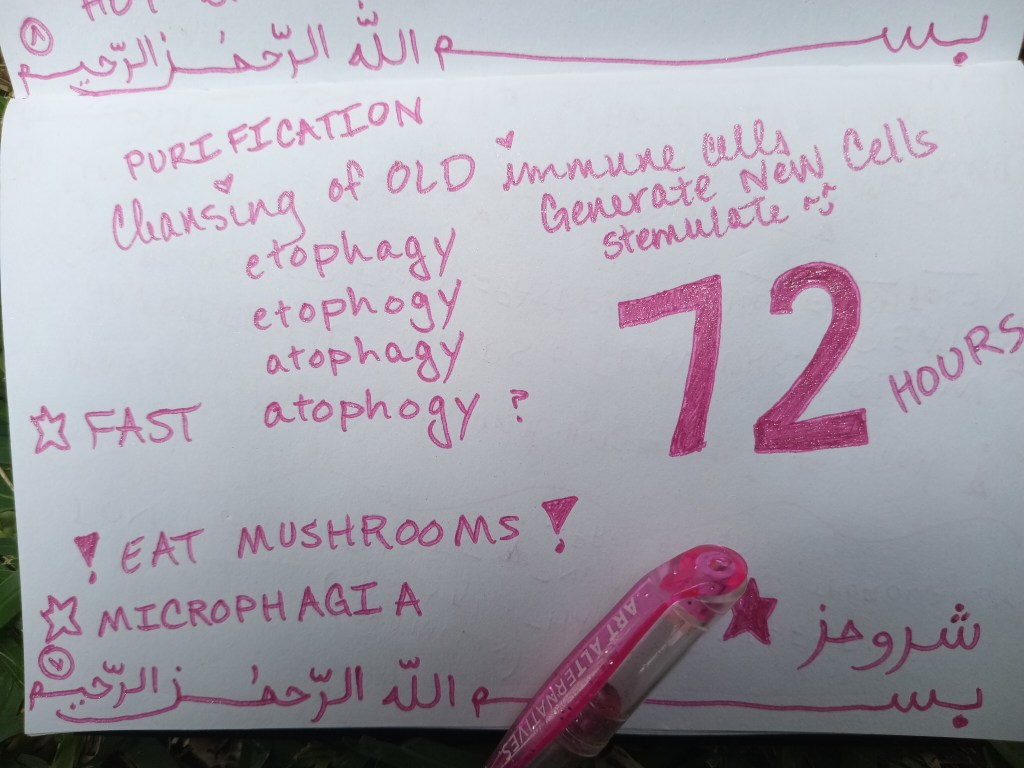 HOT
٨
بسم الله الرّحمٰن الرّحيم
PURIFICATION
Cleansing of OLD immune cells
Generate New Cells
stemulate
etophagy
etophogy
atophagy
atophogy ?
FAST
72 HOURS
! EAT MUSHROOMS !
MICROPHAGIA
شروحز
٧
بسم الله الرّحمٰن الرّحيم
ART ALTERNATIVES